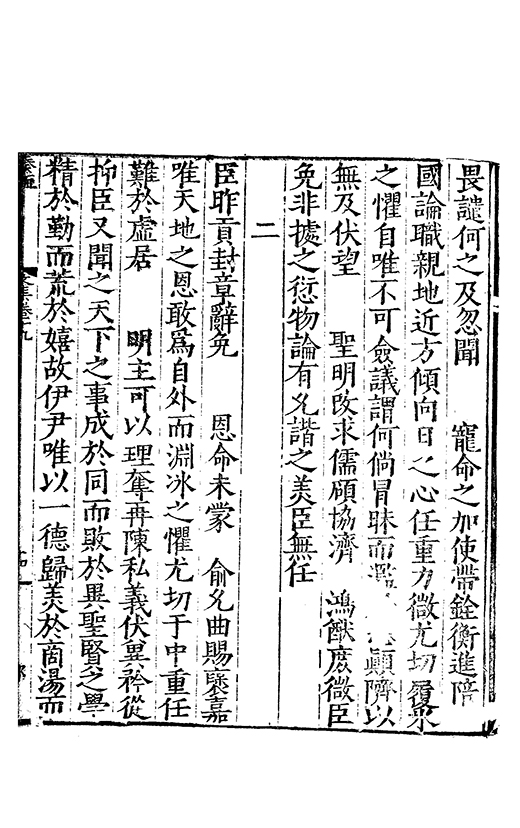 畏譴何之及忽聞　寵命之加使帶銓衡進陪
國論職親地近方傾向日之心任重力微尤切履冰
之懼自唯不可僉議謂何倘冒昧而濫顛隮以
無及伏望　聖明改求儒碩協濟　鴻猷庶微臣
免非據之愆物論有允諧之美臣無任
二
臣昨貢封章辭免　恩命未蒙　俞允曲賜褒嘉
唯天地之恩敢為自外而淵冰之懼尤切于中重任
難於虛居　明主可以理奪再陳私義伏異矜從
抑臣又聞之天下之事成於同而敗於異聖賢之學
精於勤而荒於嬉故伊尹唯以一德歸美於商湯而